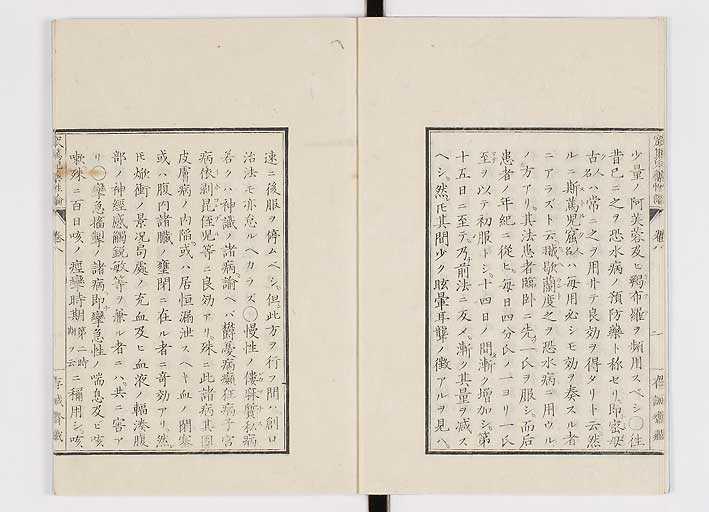 少量ノ阿芙蓉及ヒ羯布羅ヲ頻用スベシ○往
昔巳ニ之ヲ恐水病ノ預防藥ト称セリ、即密母
古名人ハ常ニ之ヲ用ヰテ良効ヲ得タリト云然
ルニ斯篤児窟名人ハ毎用必シモ効ヲ奏スル者
ニアラズト云瑊歇蘭度之ヲ恐水病ニ用ウル
ノ方アリ。其法患者臨卧ニ先一氏ヲ服シ、而后
患者ノ年紀ニ従ヒ毎日四分氏ノ一ヨリ一氏
至ヲ以テ初服トシ、十四日ノ間漸ク増加シ、第
十五日ニ至テ乃前法ニ反メ漸ク其量ヲ減ス
ヘシ。然𪜈其間少ク眩暈耳聾ノ徴アルヲ見ハ
速ニ後服ヲ停ムベシ。但此方ヲ行フ間ハ創口
治法モ亦怠ルヘカラズ○慢性ノ僂麻質私病
若クハ神識ノ諸病諭ヘバ欝憂病癲狂病子宮
病依剥昆侄児等ニ良効アリ。殊ニ此諸病其因
皮膚病ノ内陥或ハ居恒漏泄スヘキ血ノ閉塞
或ハ腹内諸臓ノ壅閉ニ在ル者ニ奇効アリ。然
𪜈焮衝ノ景况局處ノ充血及ヒ血液ノ輻湊腹
部ノ神經感觸鋭敏等ヲ兼ル者ニハ共ニ害ア
リ○攣急搐掣ノ諸病即攣急性ノ喘息及ヒ咳
嗽殊ニ百日咳ノ痙攣時期第二時期ヲ云ニ稱用シ、咳